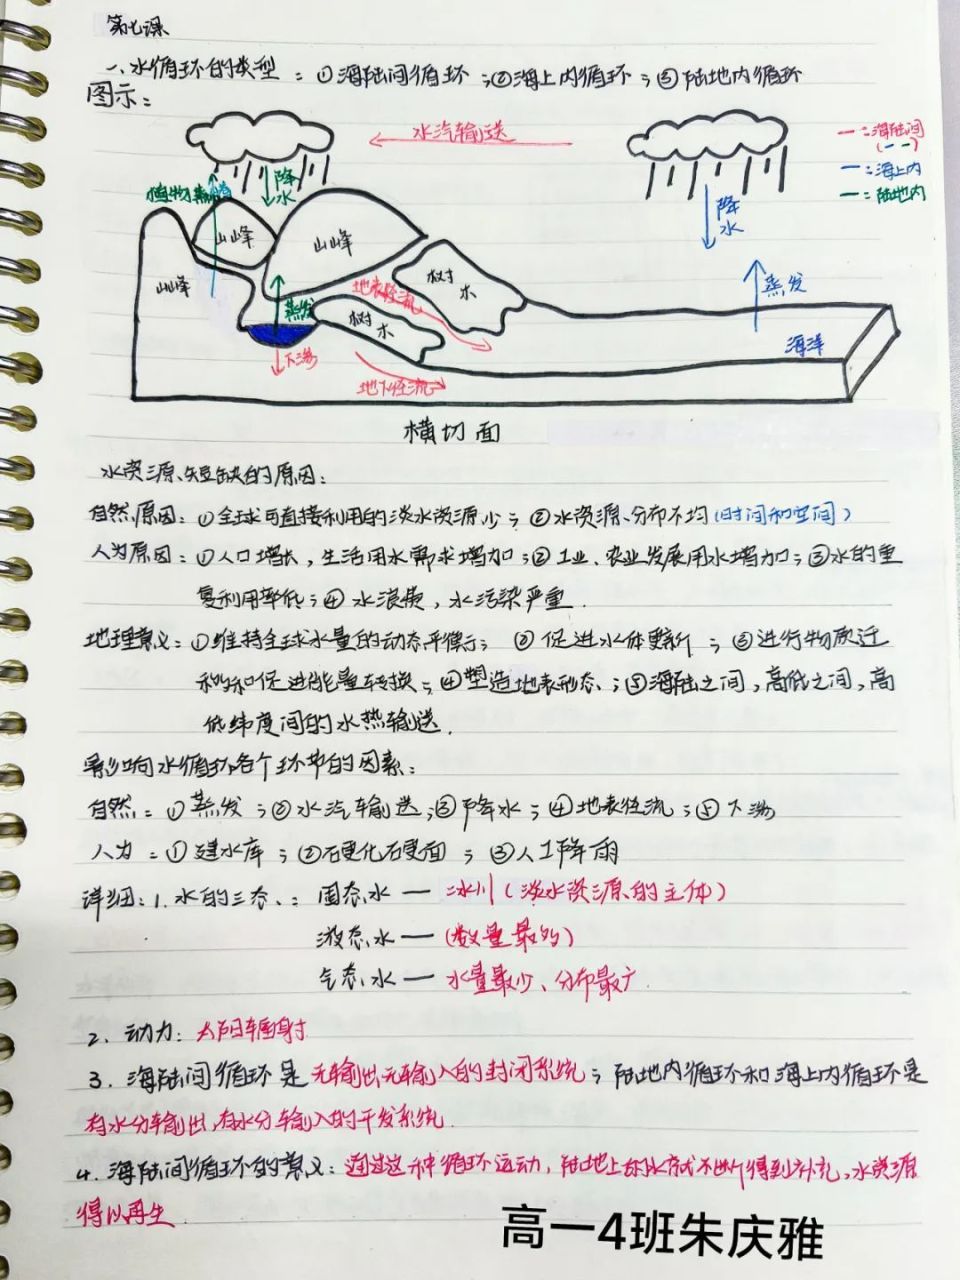 第七课
一、水循环的类型：①海陆间循环；②海上内循环；③陆地内循环
图示：
水汽输送
一：海陆间
(--)
一：海上内
一：陆地内
植物蒸腾
降水
降水
山峰
山峰
山峰
树木
树木
地表径流
蒸发
蒸发
下渗
地下径流
海洋
横切面
水资源短缺的原因：
自然原因：①全球可直接利用的淡水资源少；②水资源分布不均(时间和空间)
人为原因：①人口增长，生活用水需求增加；②工业、农业发展用水增加；③水的重
复利用率低；④水浪费，水污染严重.
地理意义：①维持全球水量的动态平衡；②促进水体更新；③进行物质迁
移和促进能量转换；④塑造地表形态；⑤海陆之间，高低之间，高
低纬度间的水热输送.
影响水循环各个环节的因素：
自然：①蒸发；②水汽输送；③降水；④地表径流；⑤下渗
人为：①建水库；②硬化硬面；③人工降雨
详细：1.水的三态：固态水—冰川(淡水资源的主体)
液态水—(数量最多)
气态水—水量最少、分布最广.
2、动力：太阳辐射.
3、海陆间循环是无输出无输入的封闭系统；陆地内循环和海上内循环是
有水分输出，有水分输入的开发系统.
4.海陆间循环的意义：通过这种循环运动，陆地上的水就不断得到补充，水资源
得以再生.
高一4班朱庆雅